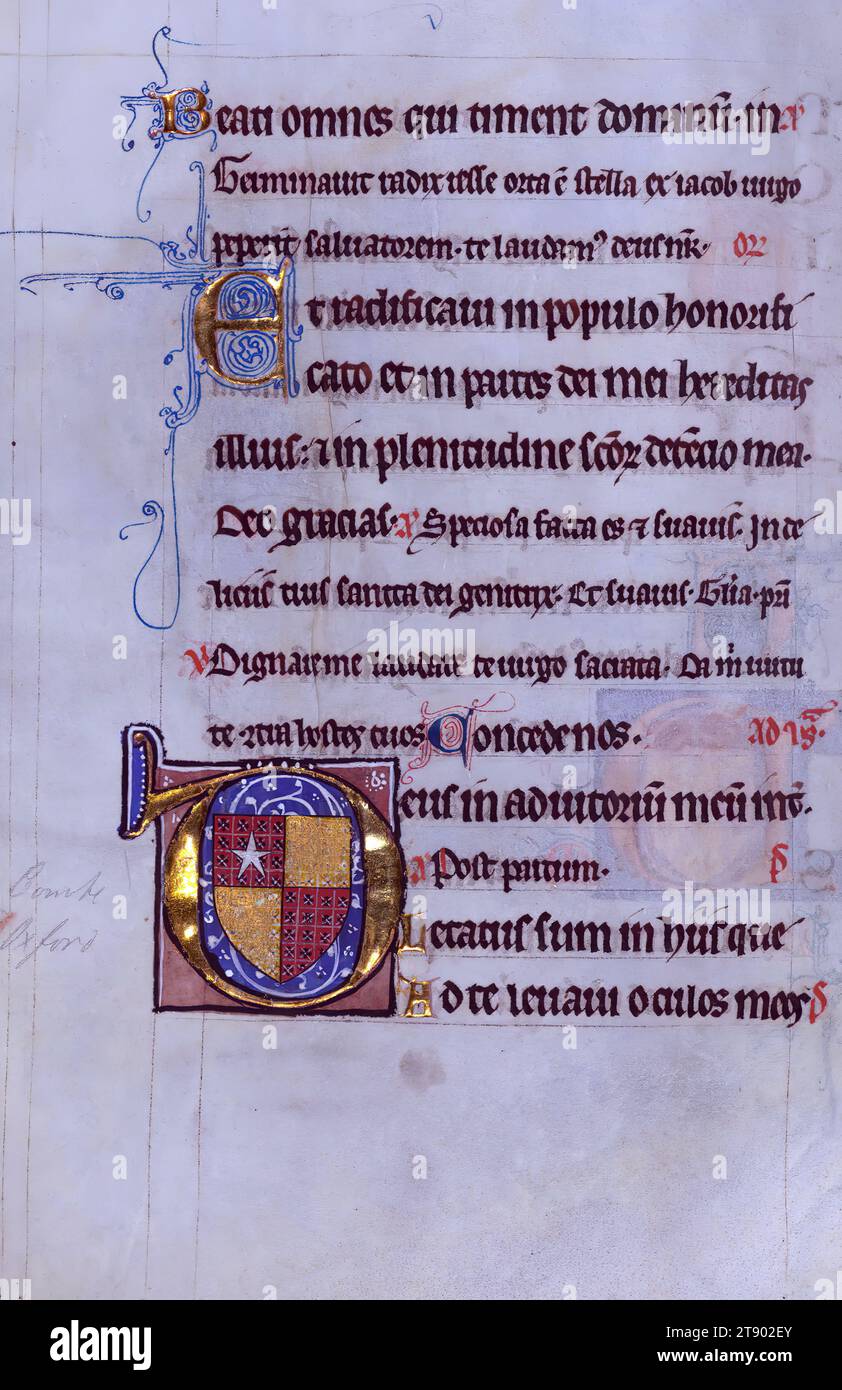 Beati omnes qui timent dominū. in
Germinavit radix iesse orta ē stella ex iacob uirgo
peperit saluatorem. te laudamꝰ deus nr̄. or
Et radificaui in populo honorifi
cato et in partes dei mei hereditas
illius: ⁊ in plenitudine scōꝝ detēcio mea.
Deo gracias. Speciosa facta es ⁊ suauis. In de
liciis tuis sancta dei genitrix. Et suauis. Glīa. pr̄i
Dignare me laudare te uirgo sacrata. Da m̄ uirtu
te ꝯtra hostes tuos Concede nos.
Deus in adiutoriū meū int̄.
Post partum.
Letatus sum in hiis que
Ad te leuaui oculos meos
Comte
Oxford
alamy
Image ID: 2T902EY
www.alamy.com